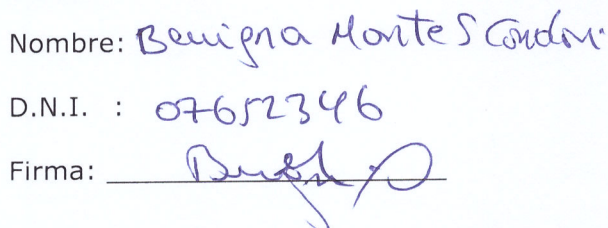 Nombre: Benigna Montes Condori
D.N.I. : 07652346
Firma: